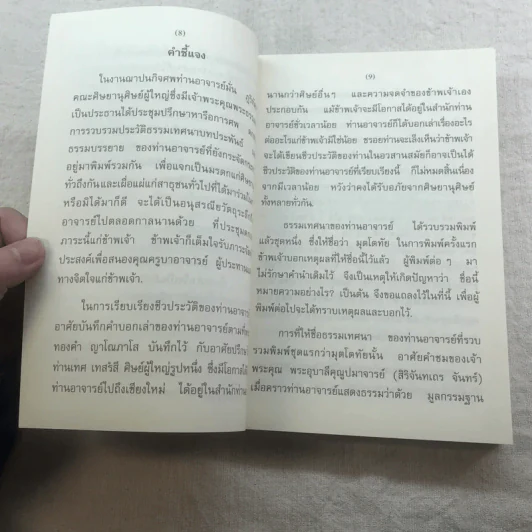 (8)
คำชี้แจง
ในงานฌาปนกิจศพท่านอาจารย์มั่น
คณะศิษยานุศิษย์ผู้ใหญ่ซึ่งมีเจ้าพระคุณพระ
เป็นประธานได้ประชุมปรึกษาหารือการศพ
การรวบรวมประวัติธรรมเทศนาบทประพันธ์
ธรรมบรรยาย ของท่านอาจารย์ที่ยังกระจัด
อยู่มาพิมพ์รวมกัน เพื่อแจกเป็นมรดกแก่
ทั่วถึงกันและเมื่อแผ่แก่สาธุชนทั่วไปที่ได้มาร่วม
หรือมิได้มาก็ดี จะได้เป็นอนุสรณียวัตถุระลึก
อาจารย์ไปตลอดกาลนานด้วย ที่ประชุม
ภาระนี้แก่ข้าพเจ้า ข้าพเจ้าก็เต็มใจรับภาระ
ประสงค์เพื่อสนองคุณครูบาอาจารย์ ผู้ประ
ทางจิตใจแก่ข้าพเจ้า
ในการเรียบเรียงชีวประวัติของท่านอาจารย์
อาศัยบันทึกคำบอกเล่าของท่านอาจารย์ตามที่
ทองคำ ญาโณภาโส บันทึกไว้ กับอาศัยปรึก
ท่านเทศ เทสรังสี ศิษย์ผู้ใหญ่รูปหนึ่ง ซึ่งมีโอกาสได้
ท่านอาจารย์ไปถึงเชียงใหม่ ได้อยู่ในสำนักท่าน
(9)
นานกว่าศิษย์อื่นๆ และความจดจำของข้าพเจ้าเอง
ประกอบกัน แม้ข้าพเจ้าจะมีโอกาสได้อยู่ในสำนักท่าน
อาจารย์ชั่วเวลาน้อย ท่านอาจารย์ก็ได้บอกเล่าเรื่องอะไร
ต่ออะไรแก่ข้าพเจ้ามิใช่น้อย ชรอยท่านจะเล็งเห็นว่าข้าพเจ้า
จะได้เขียนชีวประวัติของท่านในอวสานสมัยก็อาจเป็นได้
ชีวประวัติของท่านอาจารย์ที่เรียบเรียงนี้ ก็ไม่หมดสิ้นเนื่อง
จากมีเวลาน้อย หวังว่าคงได้รับอภัยจากศิษยานุศิษย์
ทั้งหลายทั่วกัน
ธรรมเทศนาของท่านอาจารย์ ได้รวบรวมพิมพ์
แล้วชุดหนึ่ง ซึ่งให้ชื่อว่า มุตโตทัย ในการพิมพ์ครั้งแรก
ข้าพเจ้าบอกเหตุผลที่ให้ชื่อนี้ไว้แล้ว ผู้พิมพ์ต่อ ๆ มา
ไม่รักษาคำนำเดิมไว้ จึงเป็นเหตุให้เกิดปัญหาว่า ชื่อนี้
หมายความอย่างไร? เป็นต้น จึงขอแถลงไว้ในที่นี้ เพื่อผู้
พิมพ์ต่อไปจะได้ทราบเหตุผลและบอกไว้.
การที่ให้ชื่อธรรมเทศนา ของท่านอาจารย์ที่รวบ
รวมพิมพ์ชุดแรกว่ามุตโตทัยนั้น อาศัยคำชมของเจ้า
พระคุณ พระอุบาลีคุณูปมาจารย์ (สิริจันทเถร จันทร์)
เมื่อคราวท่านอาจารย์แสดงธรรมว่าด้วย มูลกรรมฐาน